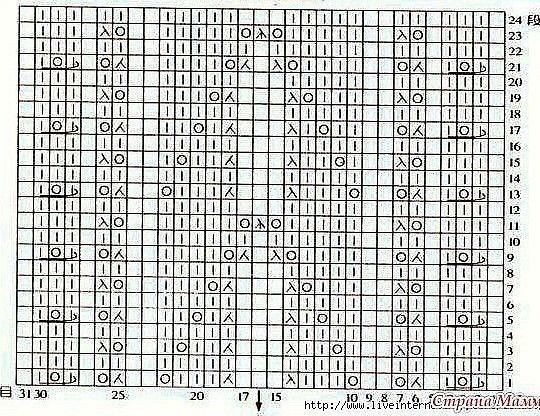 24 段
23
22
21
20
19
18
17
16
15
14
13
12
11
10
9
8
7
6
5
4
3
2
1
目 31 30 25 20 17 15 10 9 8 7 6
http://www.liveinter
Страна Мам